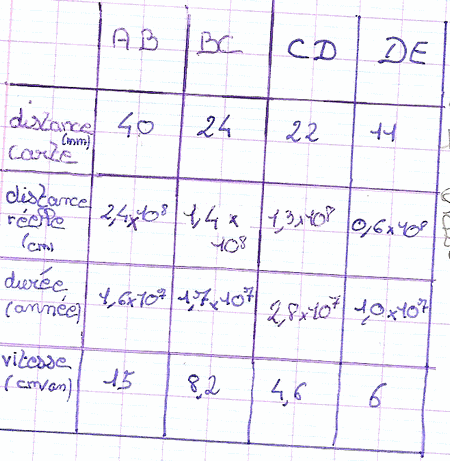 AB BC CD DE
distance (mm) carte 40 24 22 11
distance réelle (cm) 2,4x10⁸ 1,4 x 10⁸ 1,3x10⁸ 0,6x10⁸
durée (année) 1,6x10⁷ 1,7x10⁷ 2,8x10⁷ 1,0x10⁷
vitesse (cm/an) 15 8,2 4,6 6